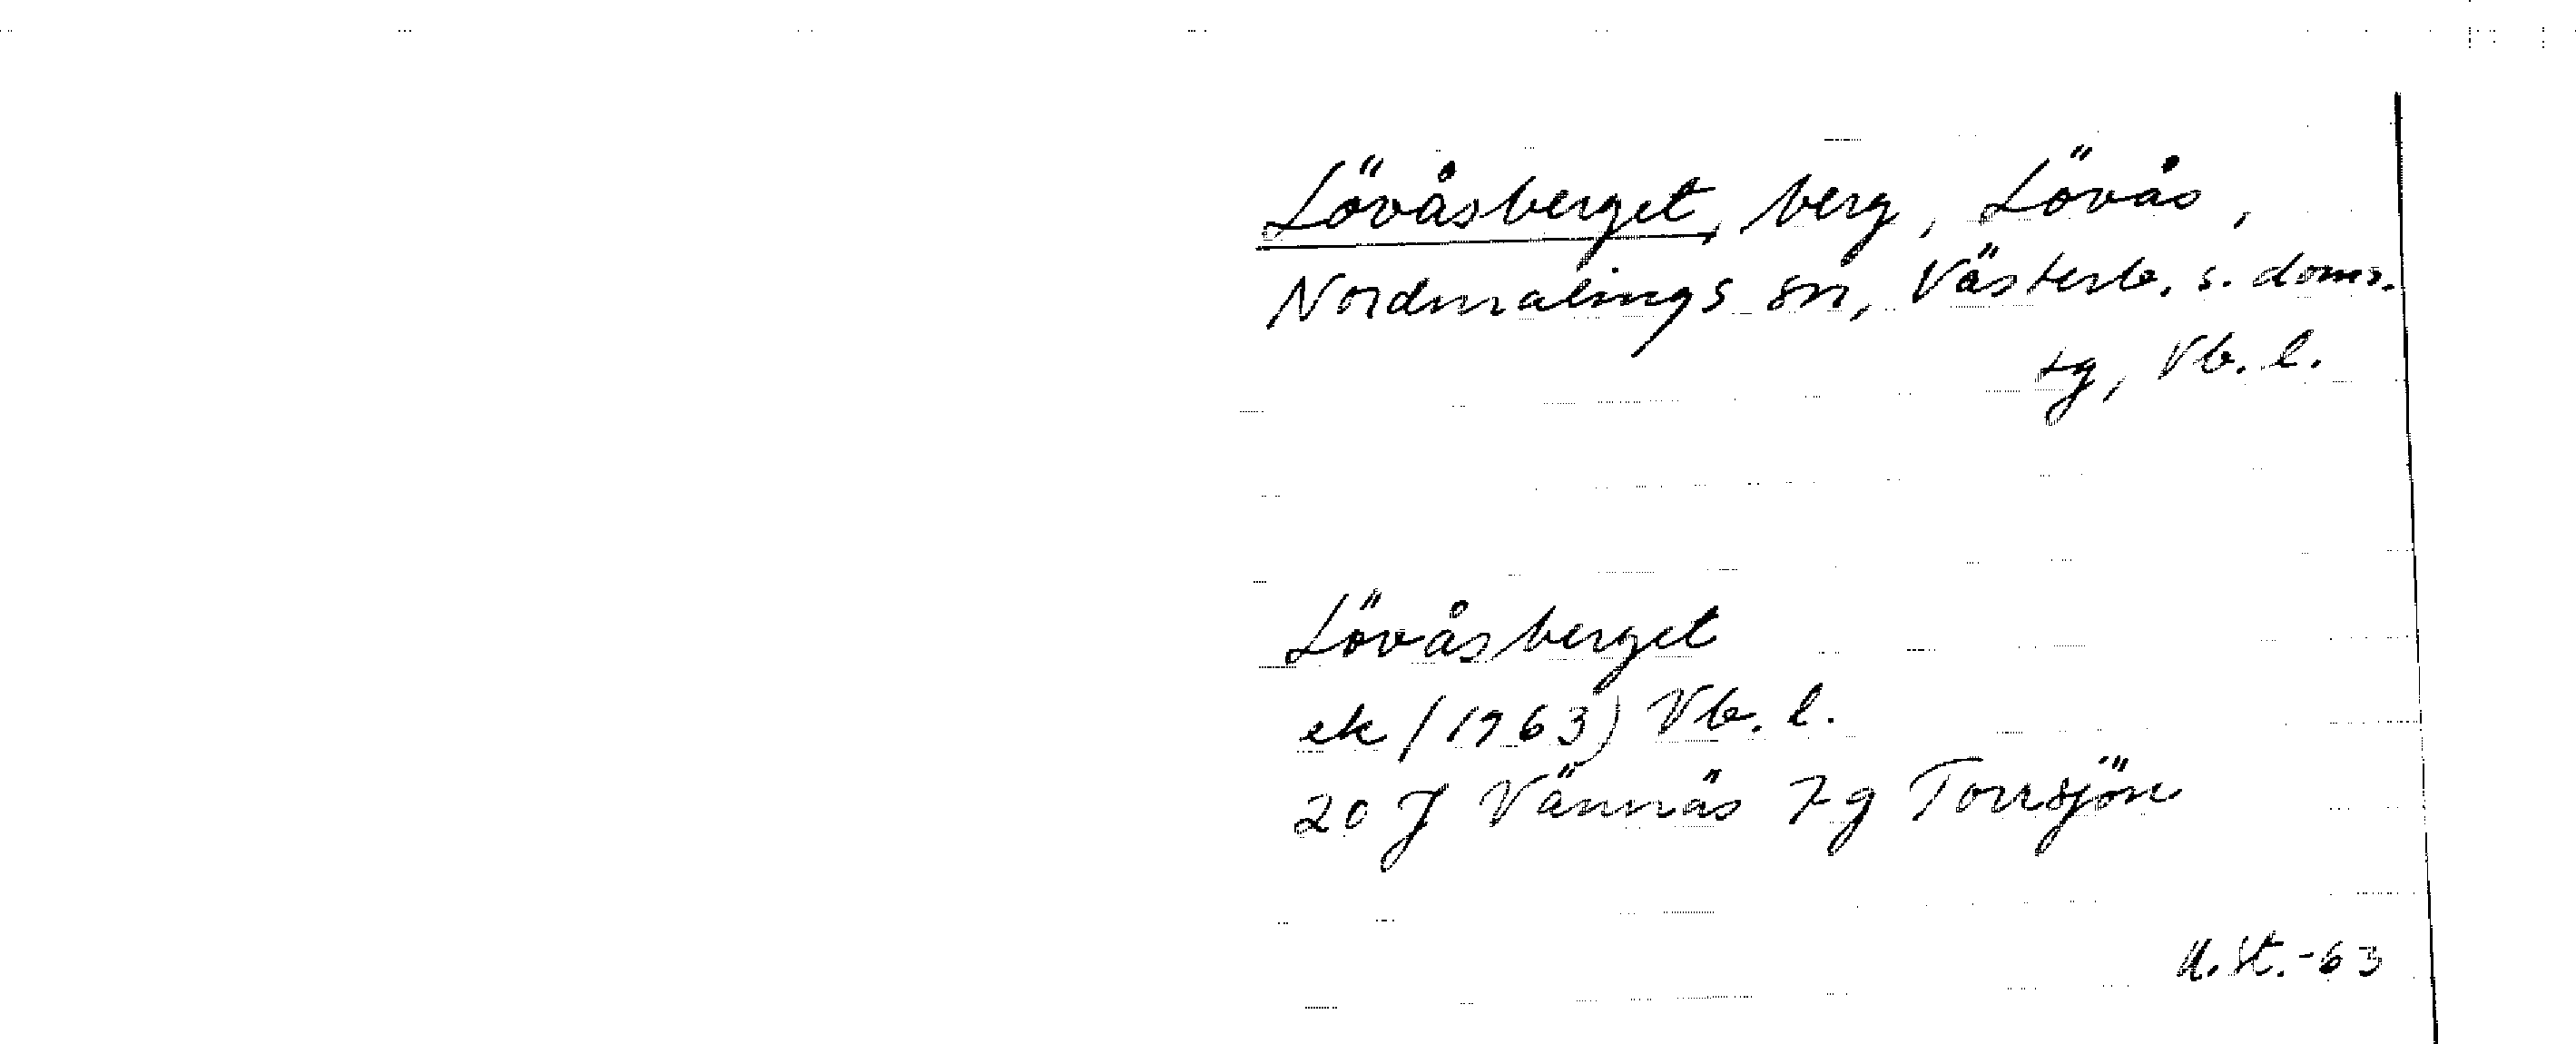 Lövåsberget, berg, Lövås,
Nordmalings sn, Västerb. s. doms.
tg, Vb. l.
Lövåsberget
ek (1963) Vb. l.
20 J Vännäs 7 g Torrsjön
U. St. -63